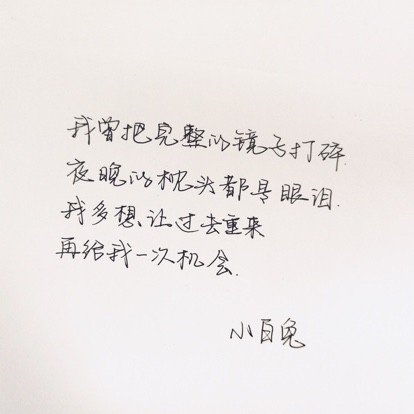 我曾把完整的镜子打碎
夜晚的枕头都是眼泪.
我多想让过去重来
再给我一次机会.
小白兔